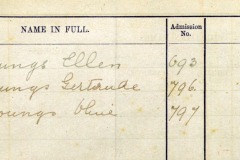 NAME IN FULL. Admission No.
ungs Ellen 693
ungs Gertrude 796
oungs Olive 797